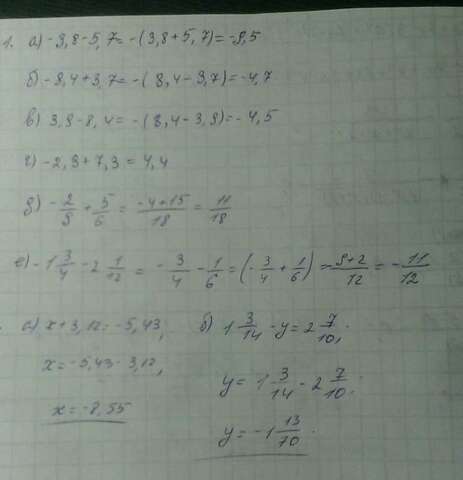 1. а) -3,8-5,7=-(3,8+5,7)=-9,5
б) -8,4+3,7=-(8,4-3,7)=-4,7
в) 3,9-8,4=-(8,4-3,9)=-4,5
г) -2,9+7,3=4,4
д) -2/9+5/6=-4+15/18=11/18
е) -1 3/4-2 1/12=-3/4-1/6=(-3/4+1/6)=-9+2/12=-11/12
а) x+3,12=-5,43, б) 1 3/14-y=2 7/10;
x=-5,43-3,12,
y=1 3/14-2 7/10;
x=-8,55
y=-1 13/70.